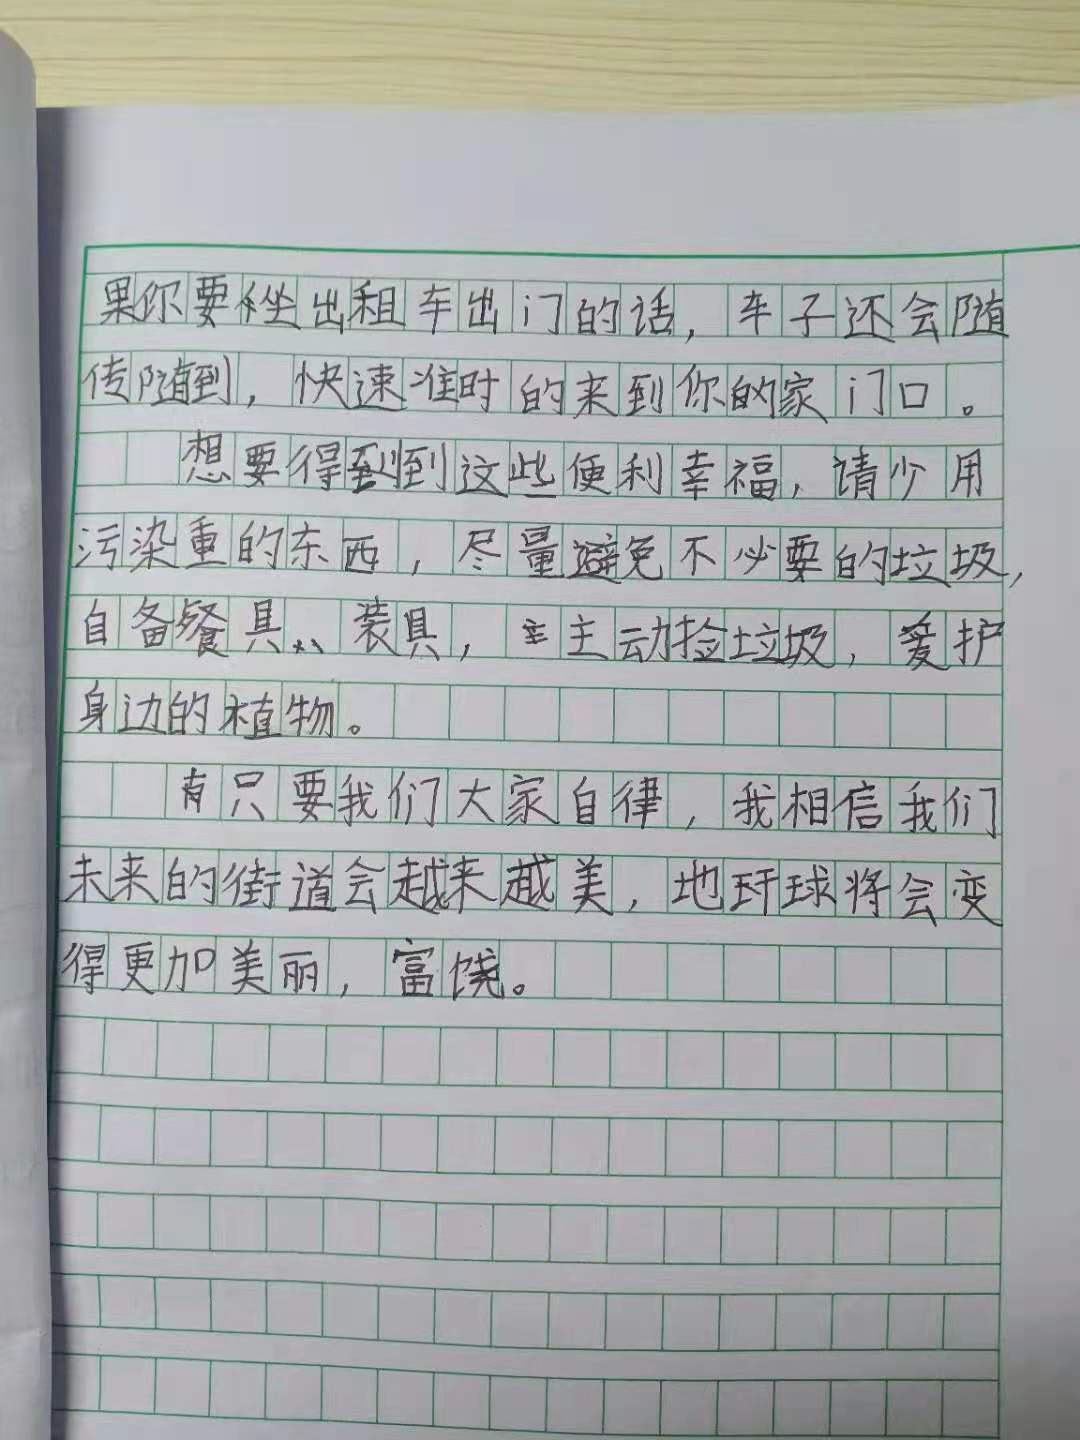 果你要坐出租车出门的话，车子还会随
传随到，快速准时的来到你的家门口。
想要得到这些便利幸福，请少用
污染重的东西，尽量避免不必要的垃圾，
自备餐具、装具，主动捡垃圾，爱护
身边的植物。
只要我们大家自律，我相信我们
未来的街道会越来越美，地环球将会变
得更加美丽，富饶。